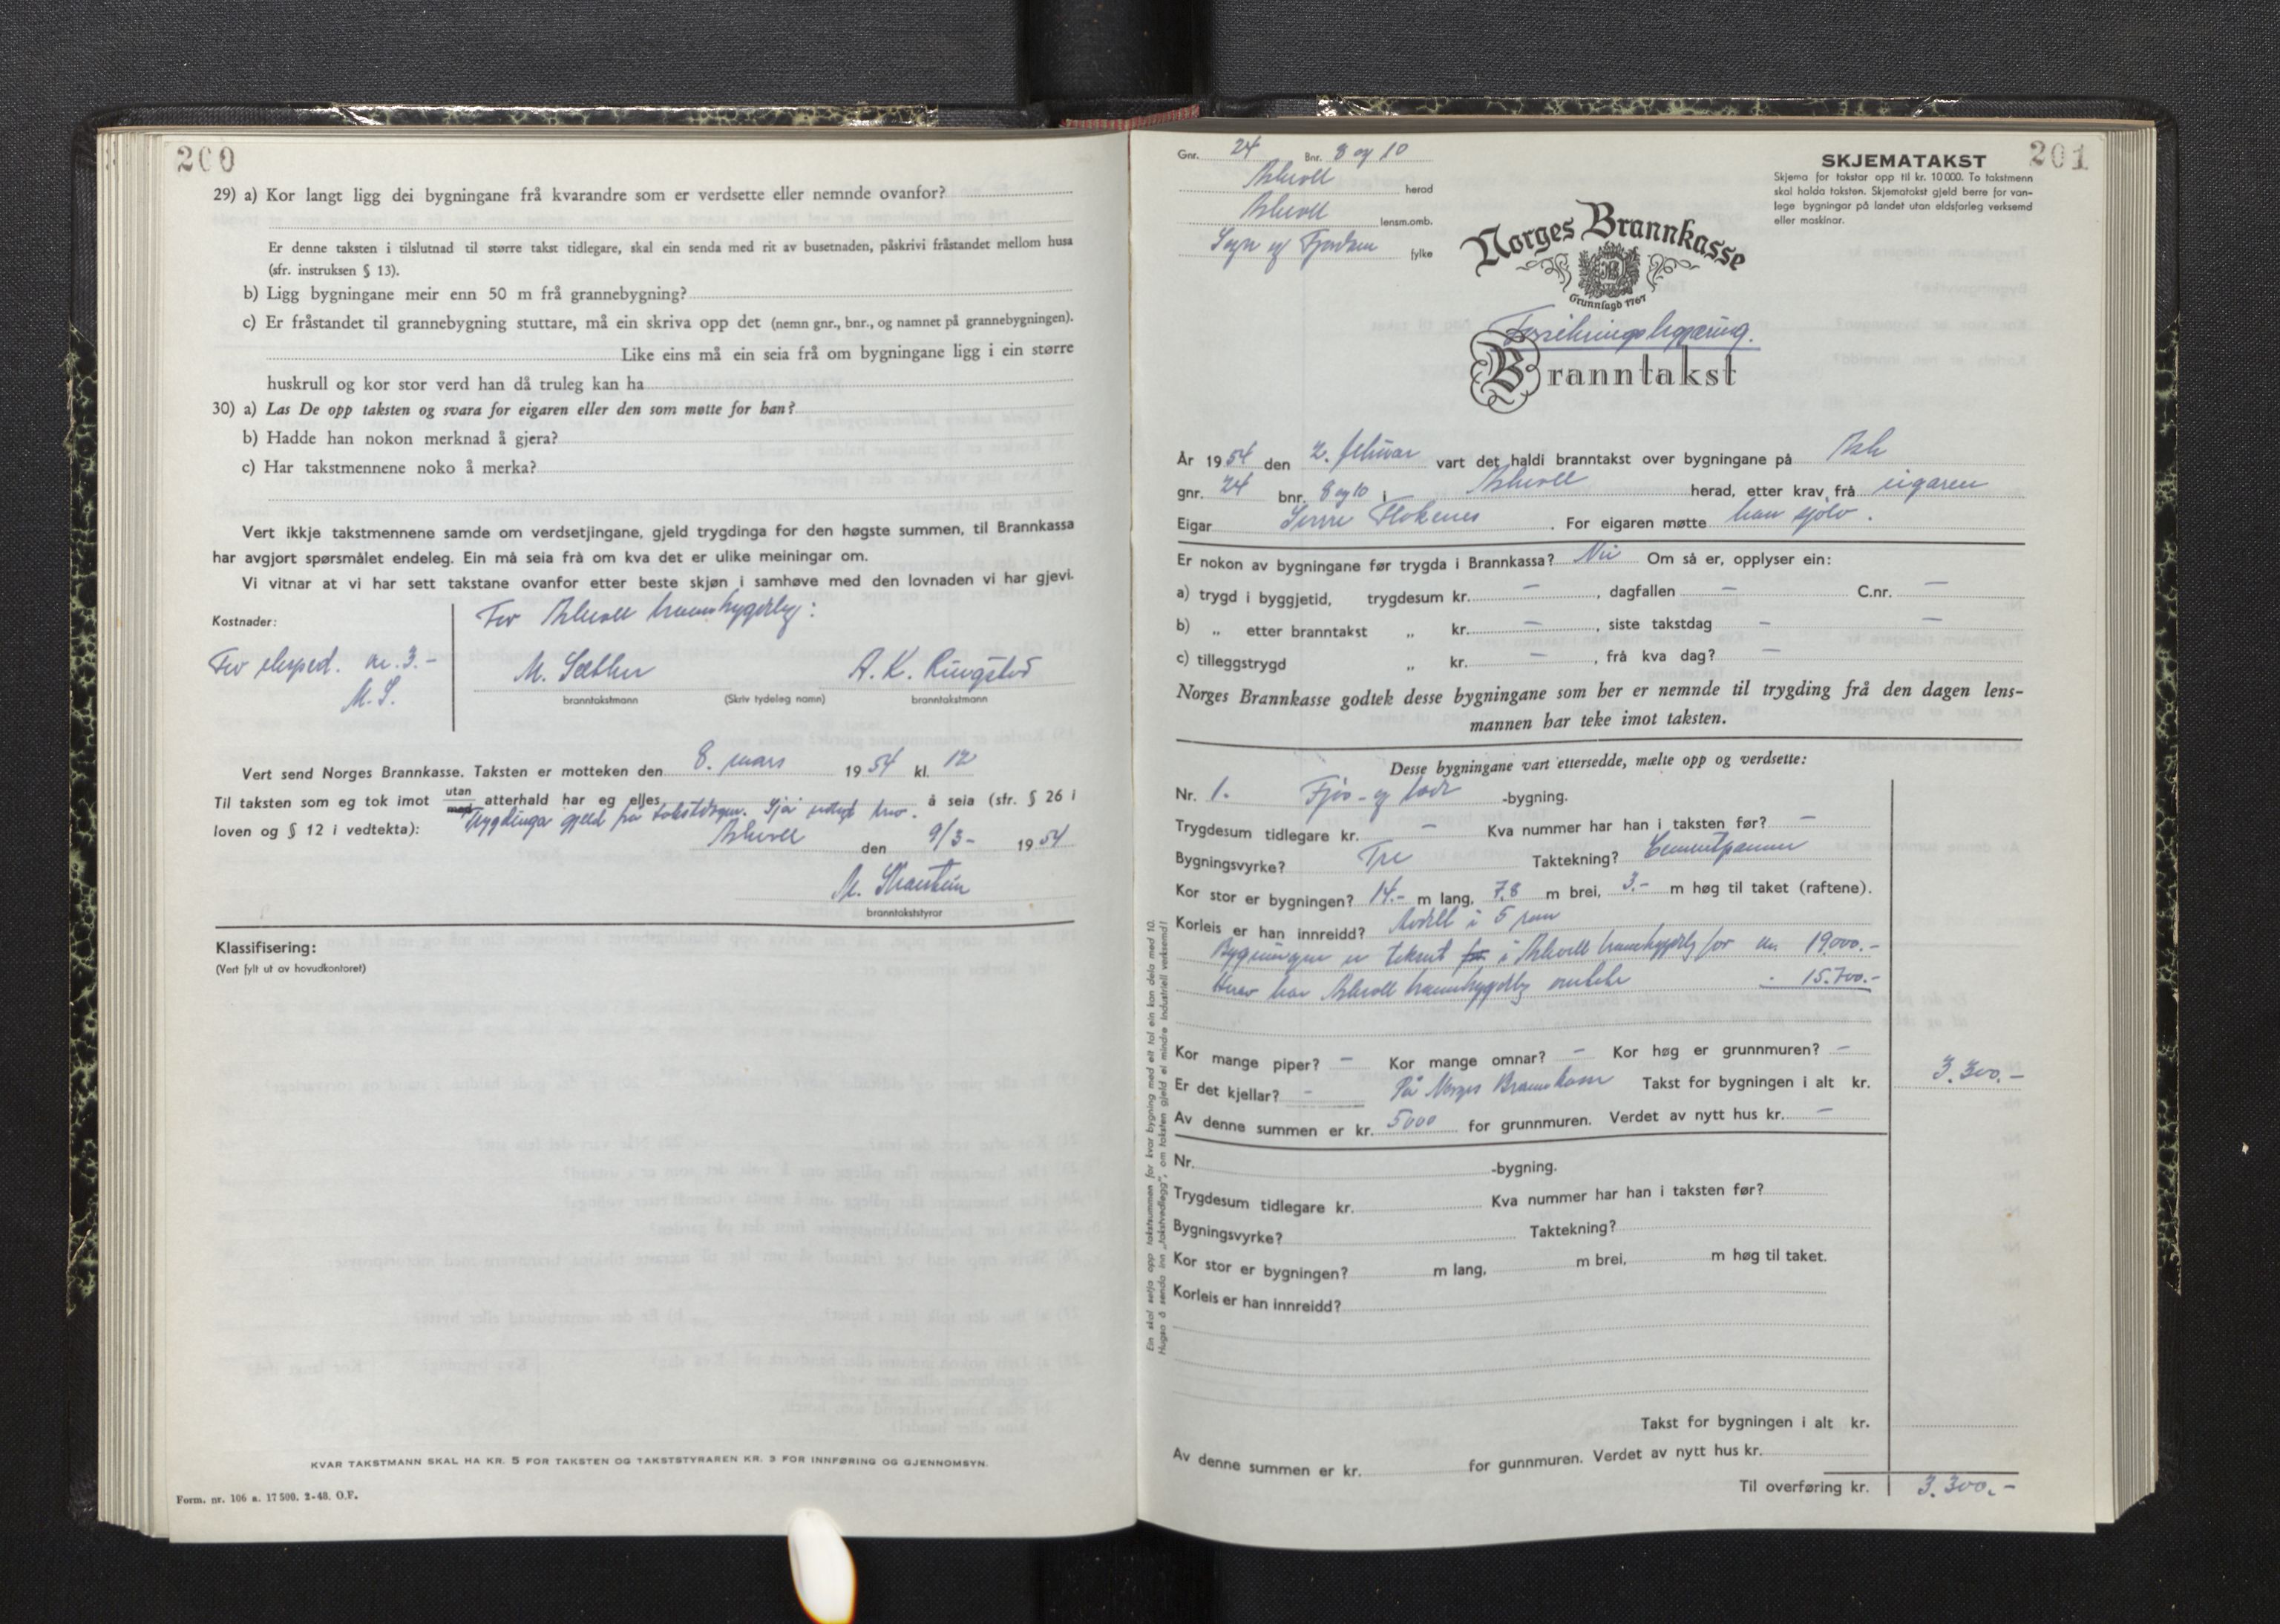 200
29) a) Kor langt ligg dei bygningane frå kvarandre som er verdsette eller nemnde ovanfor?
Er denne taksten i tilslutnad til større takst tidlegare, skal ein senda med rit av busetnaden, påskrivi fråstandet mellom husa
(sfr. instruksen § 13).
b) Ligg bygningane meir enn 50 m frå grannebygning?
c) Er fråstandet til grannebygning stuttare, må ein skriva opp det (nemn gnr., bnr., og namnet på grannebygningen).
Like eins må ein seia frå om bygningane ligg i ein større
huskrull og kor stor verd han då truleg kan ha
30) a) Las De opp taksten og svara for eigaren eller den som møtte for han?
b) Hadde han nokon merknad å gjera?
c) Har takstmennene noko å merka?
Vert ikkje takstmennene samde om verdsetjingane, gjeld trygdinga for den høgste summen, til Brannkassa
har avgjort spørsmålet endeleg. Ein må seia frå om kva det er ulike meiningar om.
Vi vitnar at vi har sett takstane ovanfor etter beste skjøn i samhøve med den lovnaden vi har gjevi.
Kostnader:
For Askvoll branntrygdelag:
For eksped. kr. 3.-
M. S.
M. Sæther
A. K. Ringstad
branntakstmann (Skriv tydeleg namn) branntakstmann
Vert send Norges Brannkasse. Taksten er motteken den 8. mars 1954 kl. 12
Til taksten som eg tok imot utan med atterhald har eg elles å seia (sfr. § 26 i
Trygdinga gjeld frå takstdagen. Sjå brev.
loven og § 12 i vedtekta):
Askvoll den 9/3- 1954
M.
branntakststyrar
Klassifisering:
(Vert fylt ut av hovudkontoret)
KVAR TAKSTMANN SKAL HA KR. 5 FOR TAKSTEN OG TAKSTSTYRAREN KR. 3 FOR INNFØRING OG GJENNOMSYN.
Form. nr. 106 a. 17 500. 2-48. O.F.
201
Gnr. 24 Bnr. 8 og 10
Askvoll herad
Askvoll lensm.omb.
Sogn og Fjordane fylke
SKJEMATAKST
Skjema for takstar opp til kr. 10 000. To takstmenn
skal halda taksten. Skjematakst gjeld berre for van-
lege bygningar på landet utan eldsfarleg verksemd
eller maskinar.
Norges Brannkasse
Grunnlagd 1767
Forsikringsbegjæring.
Branntakst
År 1954 den 2. februar vart det haldi branntakst over bygningane på Ask
gnr. 24 bnr. 8 og 10 i Askvoll herad, etter krav frå eigaren
Eigar Sverre Flokenes. For eigaren møtte han sjølv.
Er nokon av bygningane før trygda i Brannkassa? Nei Om så er, opplyser ein:
a) trygd i byggjetid, trygdesum kr. –, dagfallen – C.nr. –
b) „ etter branntakst „ kr. –, siste takstdag – –
c) tilleggstrygd „ kr. –, frå kva dag? –
Norges Brannkasse godtek desse bygningane som her er nemnde til trygding frå den dagen lens-
mannen har teke imot taksten.
Desse bygningane vart ettersedde, mælte opp og verdsette:
Nr. 1. Fjøs- og løde -bygning.
Trygdesum tidlegare kr. – Kva nummer har han i taksten før? –
Bygningsvyrke? Tre Taktekning? Cementpanner
Kor stor er bygningen? 14.- m lang, 7,8 m brei, 3.- m høg til taket (raftene).
Korleis er han innreidd? Avdelt i 5 rom
Bygningen er taksert for i Askvoll branntrygdelag for kr. 19.000.-
Herav har Askvoll branntrygdelag – 15.700.-
Kor mange piper? – Kor mange omnar? – Kor høg er grunnmuren? –
Er det kjellar? – På Norges Brannkasse Takst for bygningen i alt kr. 3.300.-
Av denne summen er kr. 5000 for grunnmuren. Verdet av nytt hus kr. –
Nr. -bygning.
Trygdesum tidlegare kr. Kva nummer har han i taksten før?
Bygningsvyrke? Taktekning?
Kor stor er bygningen? m lang, m brei, m høg til taket.
Korleis er han innreidd?
Takst for bygningen i alt kr.
Av denne summen er kr. for gunnmuren. Verdet av nytt hus kr.
Til overføring kr. 3.300.-
Ein skal setja opp takstsummen for kvar bygning med eit tal ein kan dela med 10.
Hugsa å senda inn „takstvedlegg", om taksten gjeld ei mindre industriell verksemd!